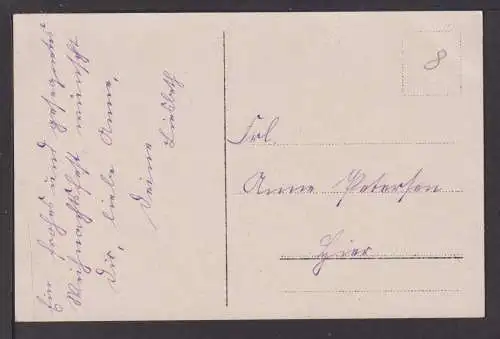 Ein frohes und gesegnetes
Weihnachtsfest wünscht
Dir, liebe Anne,
Deine
Liesbeth
8
Frl.
Anne Petersen
Hier